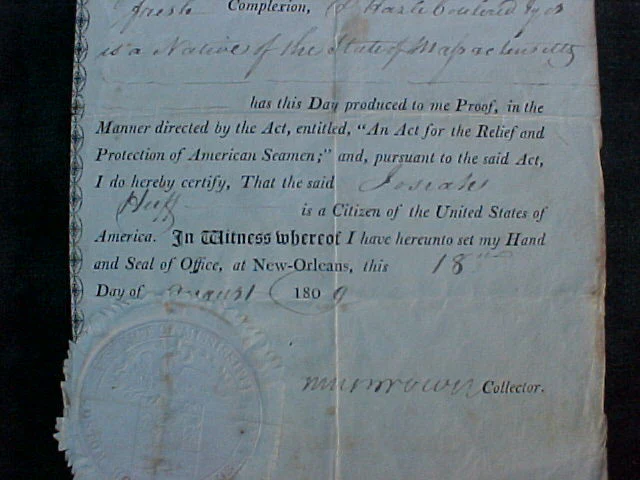 fresh Complexion, & Hazle coulered eyes
is a Native of the State of Massachusetts
has this Day produced to me Proof, in the
Manner directed by the Act, entitled, "An Act for the Relief and
Protection of American Seamen;" and, pursuant to the said Act,
I do hereby certify, That the said Josiah
Huff is a Citizen of the United States of
America. In Witness whereof I have hereunto set my Hand
and Seal of Office, at New-Orleans, this 18th
Day of August 1809
Collector.